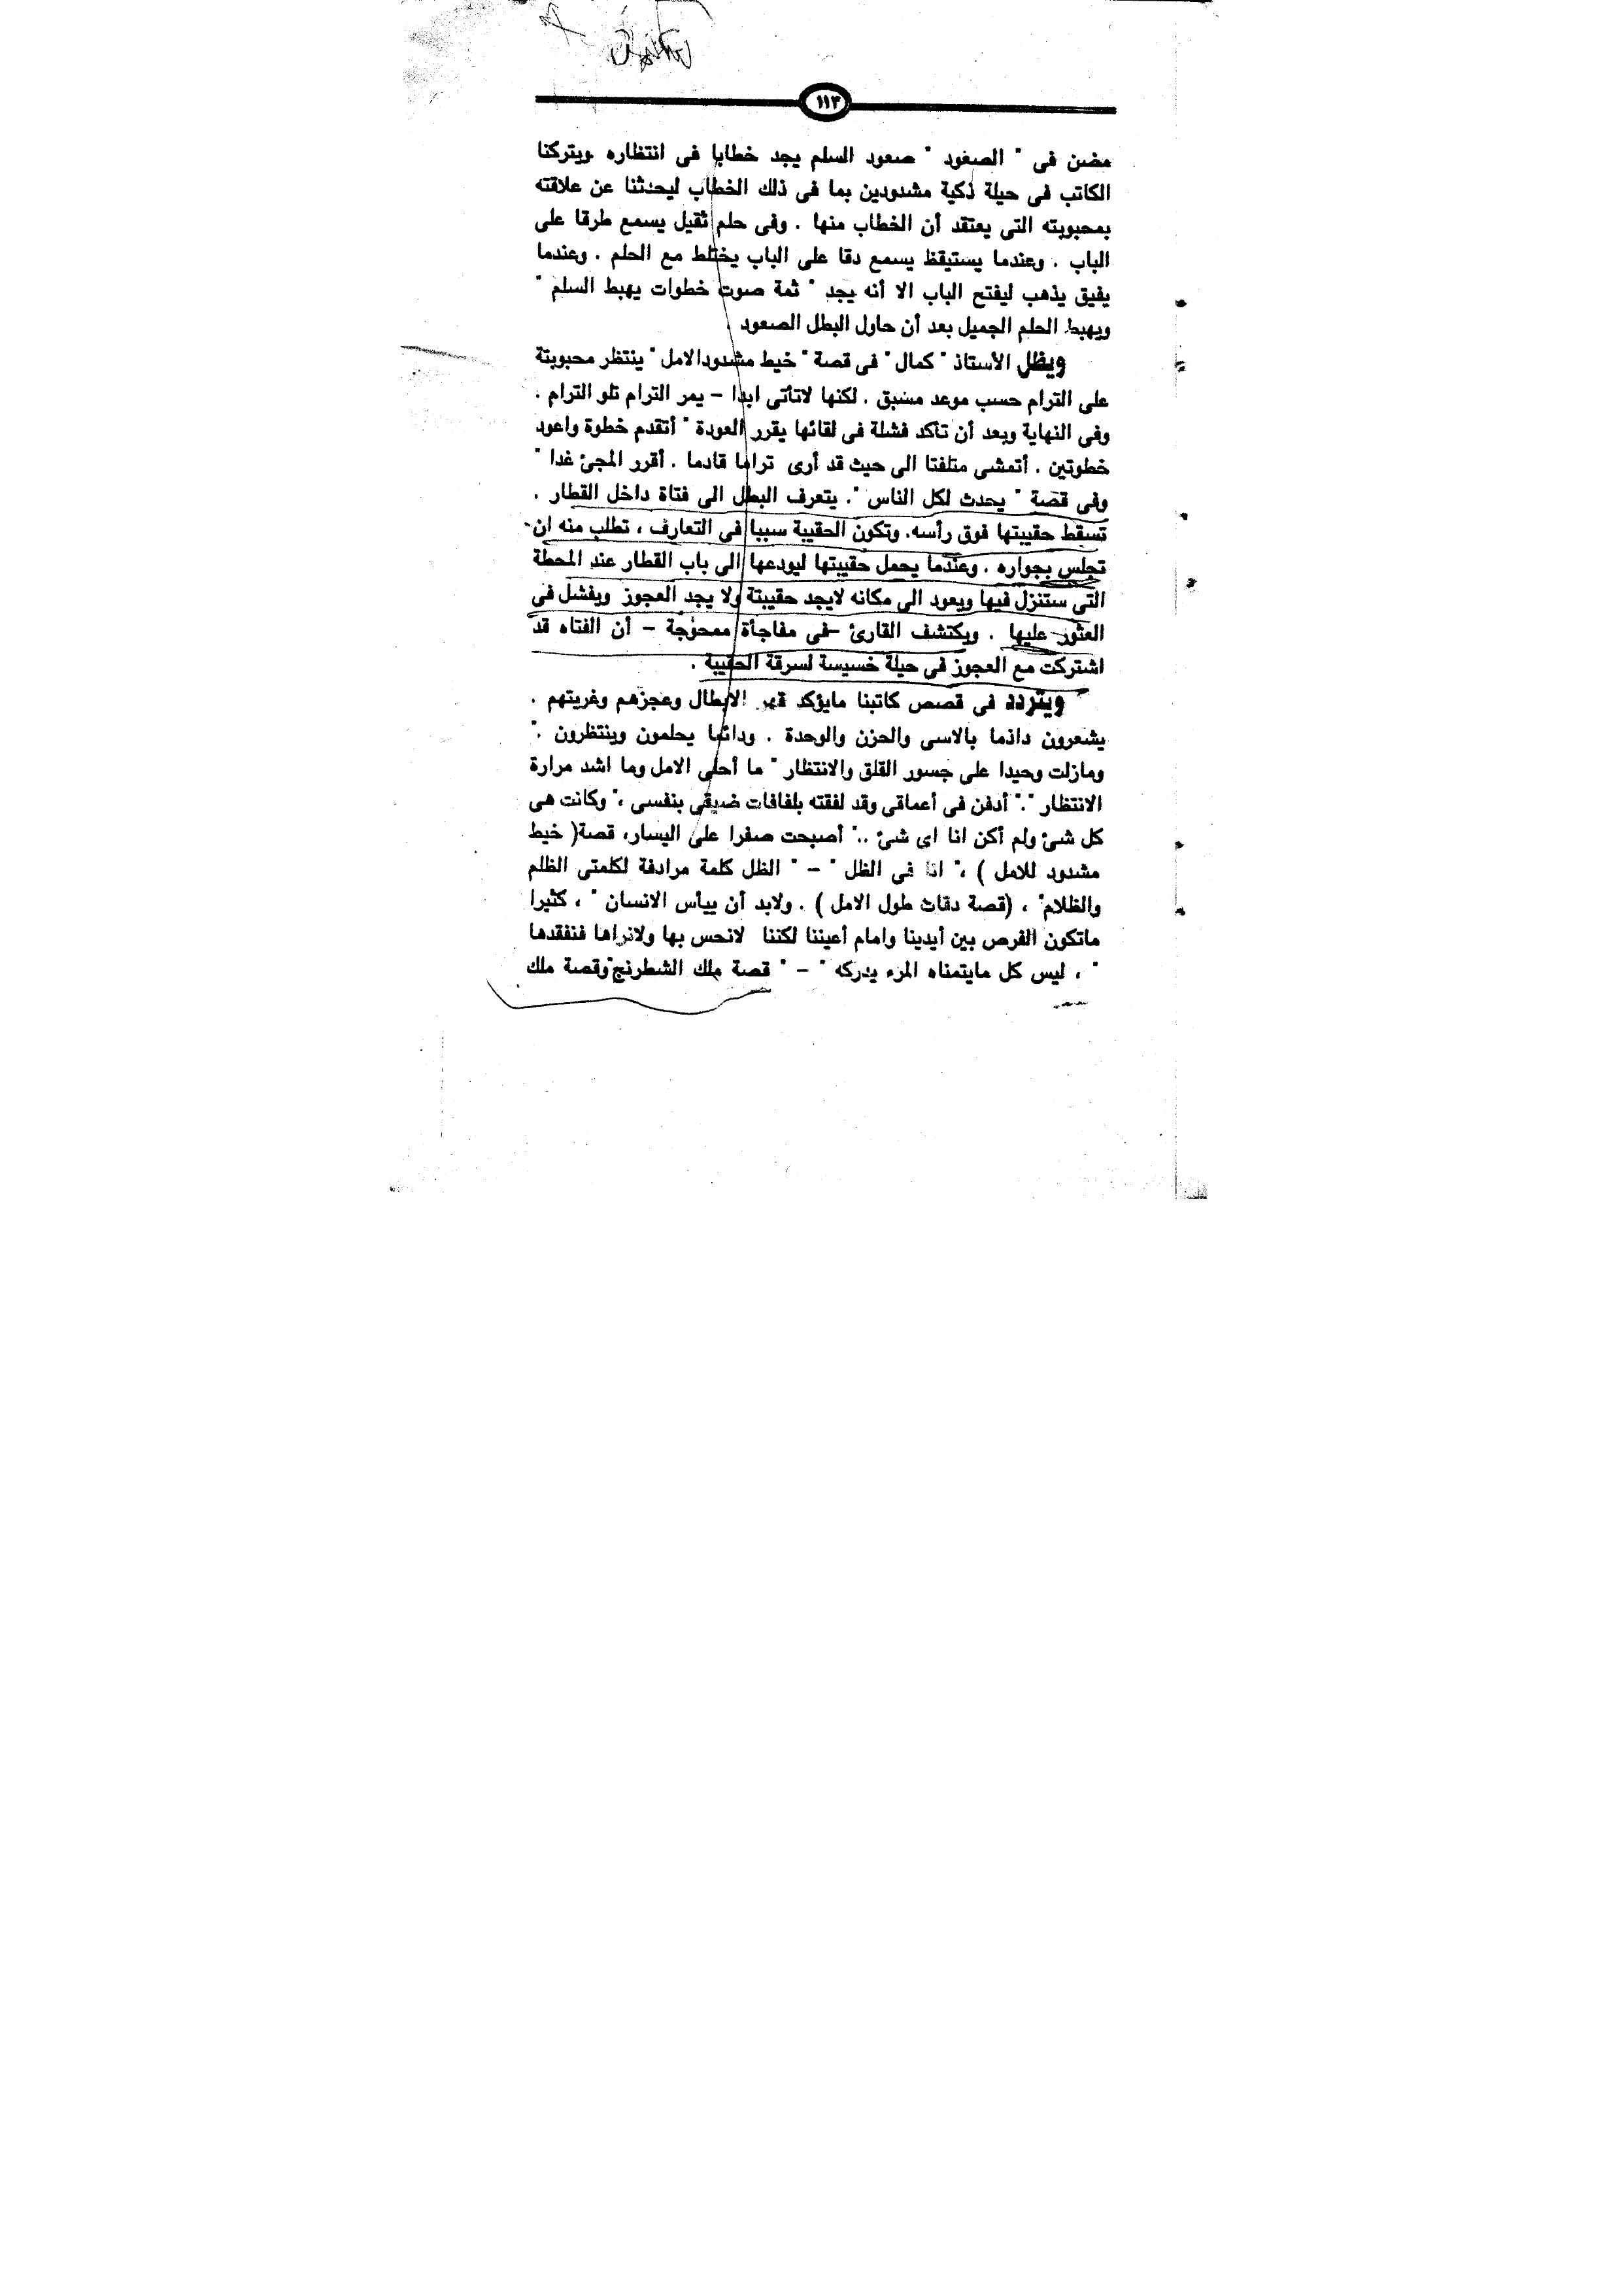 ١١٣
مضن فى " الصعود " صعود السلم يجد خطابا فى انتظاره ويتركنا
الكاتب فى حيلة ذكية مشدودين بما فى ذلك الخطاب ليحدثنا عن علاقته
بمحبوبته التى يعتقد أن الخطاب منها . وفى حلم ثقيل يسمع طرقا على
الباب . وعندما يستيقظ يسمع دقا على الباب يختلط مع الحلم . وعندما
يفيق يذهب ليفتح الباب الا أنه يجد " ثمة صوت خطوات يهبط السلم "
ويهبط الحلم الجميل بعد أن حاول البطل الصعود .
ويظل الأستاذ " كمال " فى قصة " خيط مشدودالامل " ينتظر محبوبتة
على الترام حسب موعد مسبق . لكنها لاتأتى ابدا – يمر الترام تلو الترام .
وفى النهاية وبعد أن تأكد فشلة فى لقائها يقرر العودة " أتقدم خطوة واعود
خطوتين . أتمشى متلفتا الى حيث قد أرى تراما قادما . أقرر المجئ غدا "
وفى قصة " يحدث لكل الناس ". يتعرف البطل الى فتاة داخل القطار .
تسقط حقيبتها فوق رأسه. وتكون الحقيبة سببا فى التعارف ، تطلب منه ان
تجلس بجواره . وعندما يحمل حقيبتها ليودعها الى باب القطار عند المحطة
التى ستنزل فيها ويعود الى مكانه لايجد حقيبتة ولا يجد العجوز ويفشل فى
العثور عليها . ويكتشف القارئ –فى مفاجأة ممحوجة – أن الفتاه قد
اشتركت مع العجوز فى حيلة خسيسة لسرقة الحقيبة .
ويتردد فى قصص كاتبنا مايؤكد قهر الابطال وعجزهم وغربتهم .
يشعرون دائما بالاسى والحزن والوحدة . ودائما يحلمون وينتظرون ."
ومازلت وحيدا على جسور القلق والانتظار " ما أحلى الامل وما اشد مرارة
الانتظار "." أدفن فى أعماقى وقد لففته بلفافات ضيقى بنفسى ،" وكانت هى
كل شئ ولم أكن انا اى شئ .." أصبحت صفرا على اليسار، قصة( خيط
مشدود للامل ) ،" انا فى الظل " – " الظل كلمة مرادفة لكلمتى الظلم
والظلام" ، (قصة دقات طول الامل ) . ولابد أن ييأس الانسان " ، كثيرا
ماتكون الفرص بين أيدينا وامام أعيننا لكننا لانحس بها ولانراها فنفقدها
" ، ليس كل مايتمناه المرء يدركه " – " قصة ملك الشطرنج"وقصة ملك